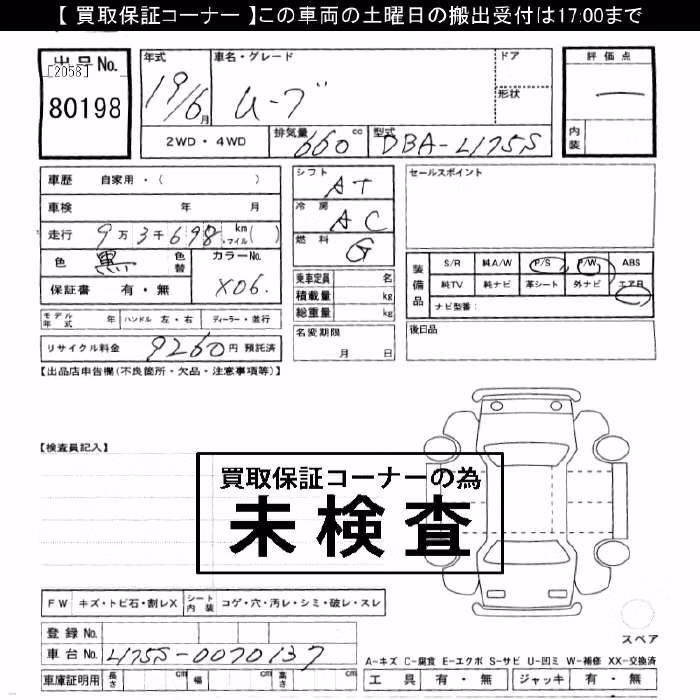 【 買取保証コーナー 】この車両の土曜日の搬出受付は17:00まで
出品No.
[2058]
80198
年式
19/6月
車名・グレード
ムーブ
ドア
形状
評価点
—
内装
2WD・4WD
排気量 660 cc
型式 DBA-L175S
車歴 自家用・( )
車検 年 月
走行 9万3千698 km・マイル( )
色 黒 色替
カラーNo. X06.
保証書 有・無
モデル年式 年
ハンドル 左・右
ディーラー・並行
リサイクル料金 9260円 預託済
シフト AT
冷房 AC
燃料 G
乗車定員 名
積載量 kg
総重量 kg
名変期限
月 日
セールスポイント
装備品
S/R 純A/W P/S P/W ABS
純TV 純ナビ 革シート 外ナビ エアB
ナビ型番:
後日品
【出品店申告欄(不良箇所・欠品・注意事項等)】
【検査員記入】
買取保証コーナーの為
未検査
FW キズ・トビ石・割レX
シート内装 コゲ・穴・汚レ・シミ・破レ・スレ
登録No.
車台No. L175S-0070137
車庫証明用 長さ cm 幅 cm 高さ cm
スペア
A-キズ C-腐食 E-エクボ S-サビ U-凹ミ W-補修 XX-交換済
工具 有・無 ジャッキ 有・無